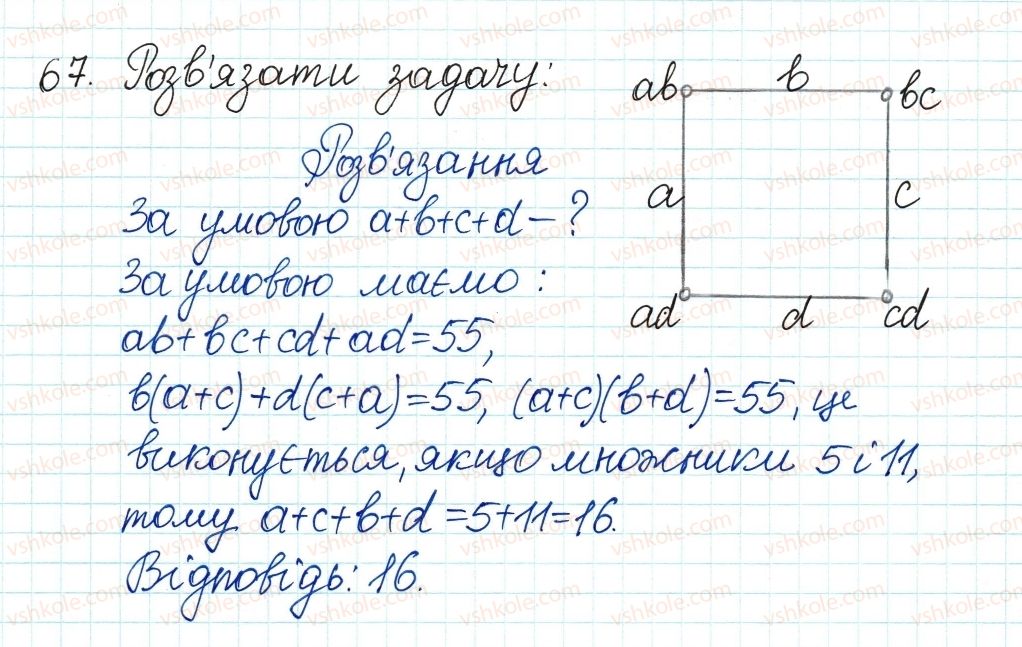 67. Розв'язати задачу:
ab b bc
Розв'язання
a c
За умовою a+b+c+d - ?
За умовою маємо:
ad d cd
ab+bc+cd+ad=55,
b(a+c)+d(c+a)=55, (a+c)(b+d)=55, це
виконується, якщо множники 5 і 11,
тому a+c+b+d=5+11=16.
Відповідь: 16.
vshkole.com